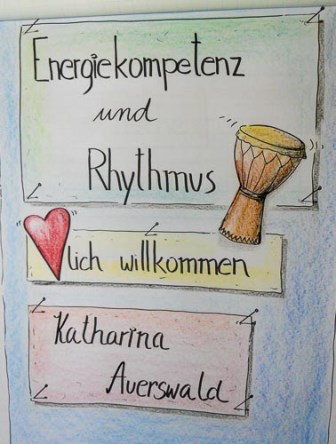 Energiekompetenz
und
Rhythmus
lich willkommen
Katharina
Auerswald